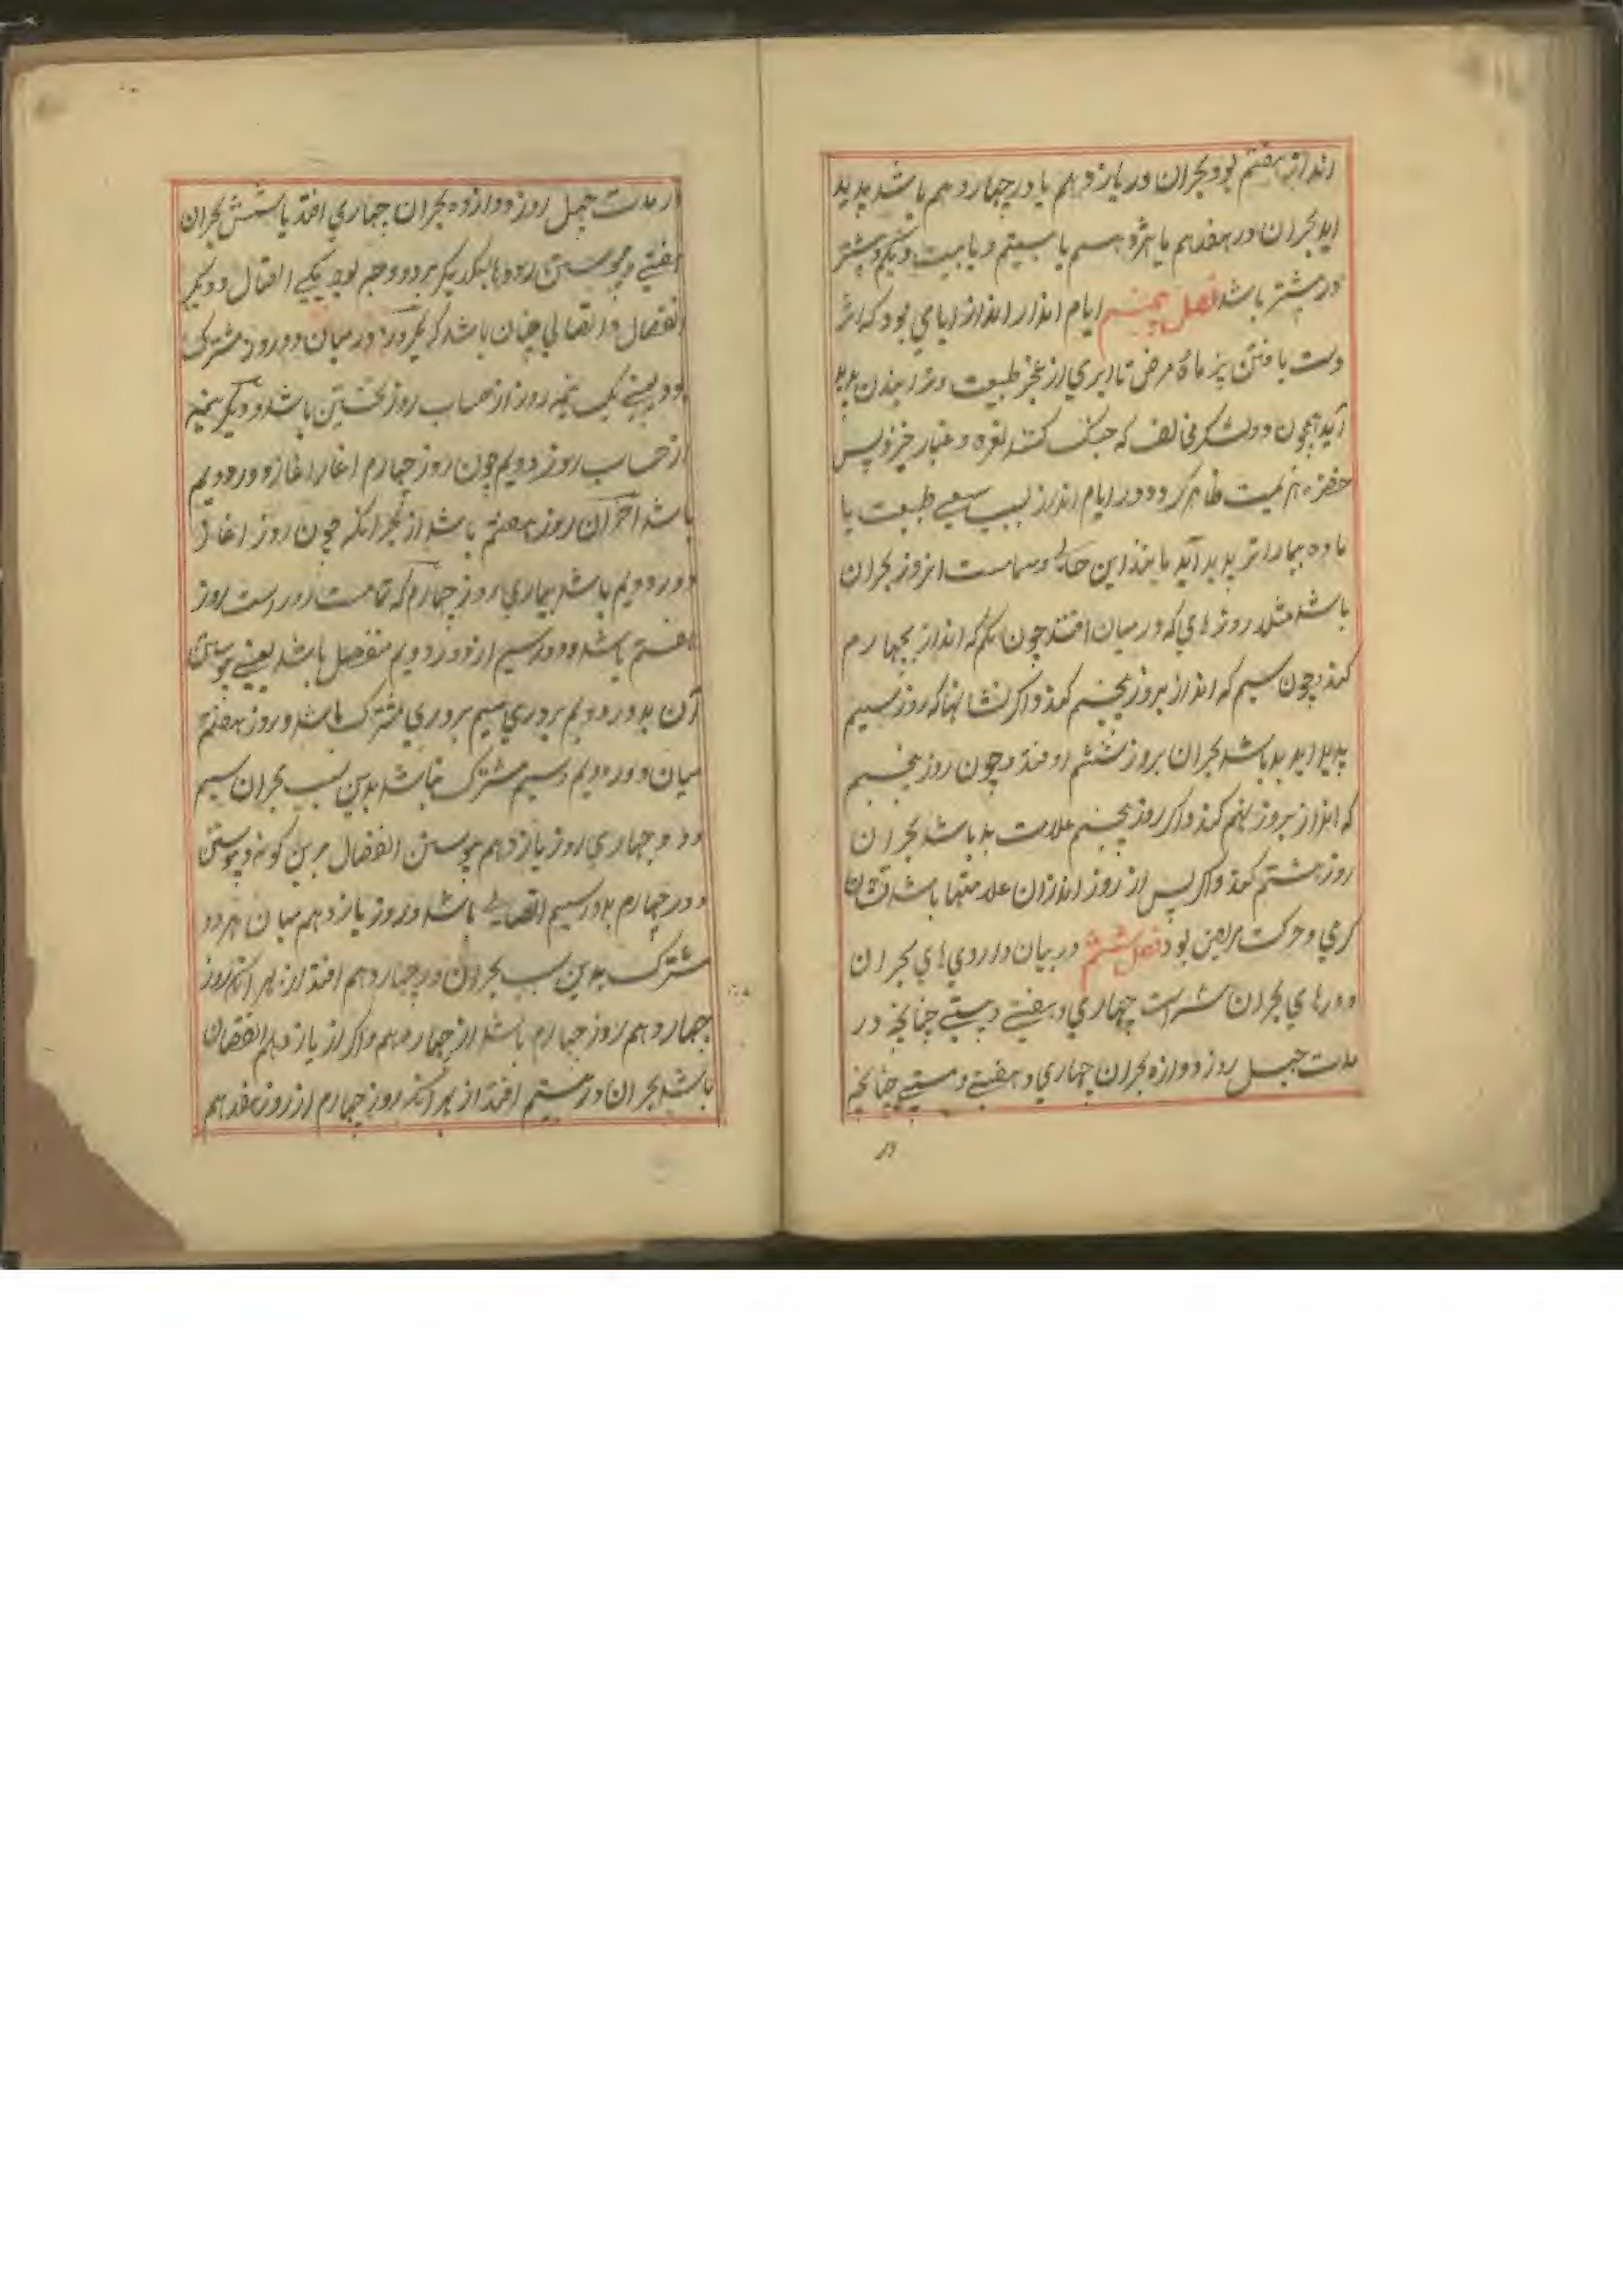 انداز هفتم بود بحران در یازدهم یا در چهاردهم باشد پدید
اید بحران در هفدهم یا هژدهم یا بیستم و یا بیست و یکم و بیشتر
در بیشتر باشد فصل پنجم ایام انذار انداز ایامی بود که اثر
دست یافتن بر ماده مرض تا اثری از عجز طبیعت بدن پدید
آید همچون دو لشکر مخالف که جنگ کنند نعره و غبار خیزد پس
هزیمت ظاهر گردد و در ایام انذار بسبب سعی طبیعت با
ماده بیمار اثر پدید آید مانند این حال از روز بحران
باشد مثلا روزهای که در میان افتد چون یکم که انداز بچهارم
کند و چون سیم که انداز بروز پنجم کند و اگر نشانها که روز سیم
پدید اید بد باشد بحران بروز ششم اوفتد و چون روز پنجم
که انداز بروز نهم کند و اگر روز پنجم علامت بد باشد بحران
روز هشتم کند و اگر پس از روز انذار آن علامتها باشد نشان
گرمی و حرکت مرض بود فصل ششم در بیان داروی های بحران
دورهای بحران است چهاری و هفتی و بستی چنانچه در
مدت چهل روز دوازه بحران چهاری و هفتی و بستی چنانچه
در
در مدت چهل روز دوازده بحران چهاری افتد یا شش بحران
هفتی و پیوستن دورها بیکدیگر بر دو وجه بود یکی اتصال و دیگر
انفصال و اتصالی چنان باشد که یکروز در میان دو دور مشترک
بود یعنی یک نیمه روز از حساب روز نخستین باشد و دیگر نیمه
از حساب روز دویم چون روز چهارم اغاز دور دویم
باشد آخر آن روز هفتم باشد از بحرانکه چون روز اغاز
دور دویم باشد بیماری روز چهارم که تمامت دور است روز
هفتم باشد و دور سیم از دور دویم منفصل باشد یعنی پیوستن
آن بدور دویم بروزی سیم بروزی مشترک باشد و روز هفتم
میان دور دویم و سیم مشترک نباشد بدین سبب بحران سیم
دور چهاری روز یازدهم پیوستن انفصال برین گونه و پیوستن
دور چهارم بدور سیم اتصالی باشد و روز یازدهم میان هر دو
مشترک بدین سبب بحران در چهاردهم افتد از بهر آنکه روز
چهاردهم روز چهارم باشد از چهاردهم و اگر از یازدهم انفصال
باشد بحران در بیستم افتد از بهر آنکه روز چهارم از روز هفدهم